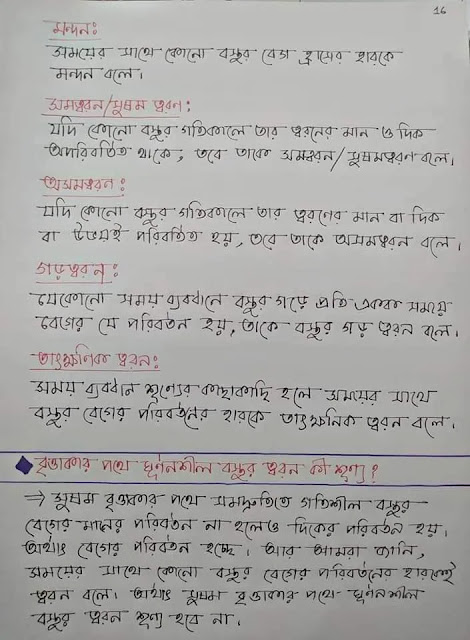 16
মন্দন:
সময়ের সাথে কোনো বস্তুর বেগ হ্রাসের হারকে
মন্দন বলে।
সমত্বরন/সুষম ত্বরণ:
যদি কোনো বস্তুর গতিকালে তার ত্বরনের মান ও দিক
অপরিবর্তিত থাকে, তবে তাকে সমত্বরন/সুষমত্বরণ বলে।
অসমত্বরণ:
যদি কোনো বস্তুর গতিকালে তার ত্বরণের মান বা দিক
বা উভয়ই পরিবর্তিত হয়, তবে তাকে অসমত্বরন বলে।
গড়ত্বরন:
যেকোনো সময় ব্যবধানে বস্তুর গড়ে প্রতি একক সময়ে
বেগের যে পরিবর্তন হয়, তাকে বস্তুর গড় ত্বরন বলে।
তাৎক্ষণিক ত্বরন:
সময় ব্যবধান শূণ্যের কাছাকাছি হলে সময়ের সাথে
বস্তুর বেগের পরিবর্তনের হারকে তাৎক্ষনিক ত্বরন বলে।
বৃত্তাকার পথে ঘূর্ণনশীল বস্তুর ত্বরন কী শূণ্য?
⇒ সুষম বৃত্তাকার পথে সমদ্রুতিতে গতিশীল বস্তুর
বেগের মানের পরিবর্তন না হলেও দিকের পরিবর্তন হয়।
অর্থাৎ বেগের পরিবর্তন হচ্ছে। আর আমরা জানি,
সময়ের সাথে কোনো বস্তুর বেগের পরিবর্তনের হারকেই
ত্বরন বলে। অর্থাৎ সুষম বৃত্তাকার পথে ঘূর্ণনশীল
বস্তুর ত্বরন শূণ্য হবে না।